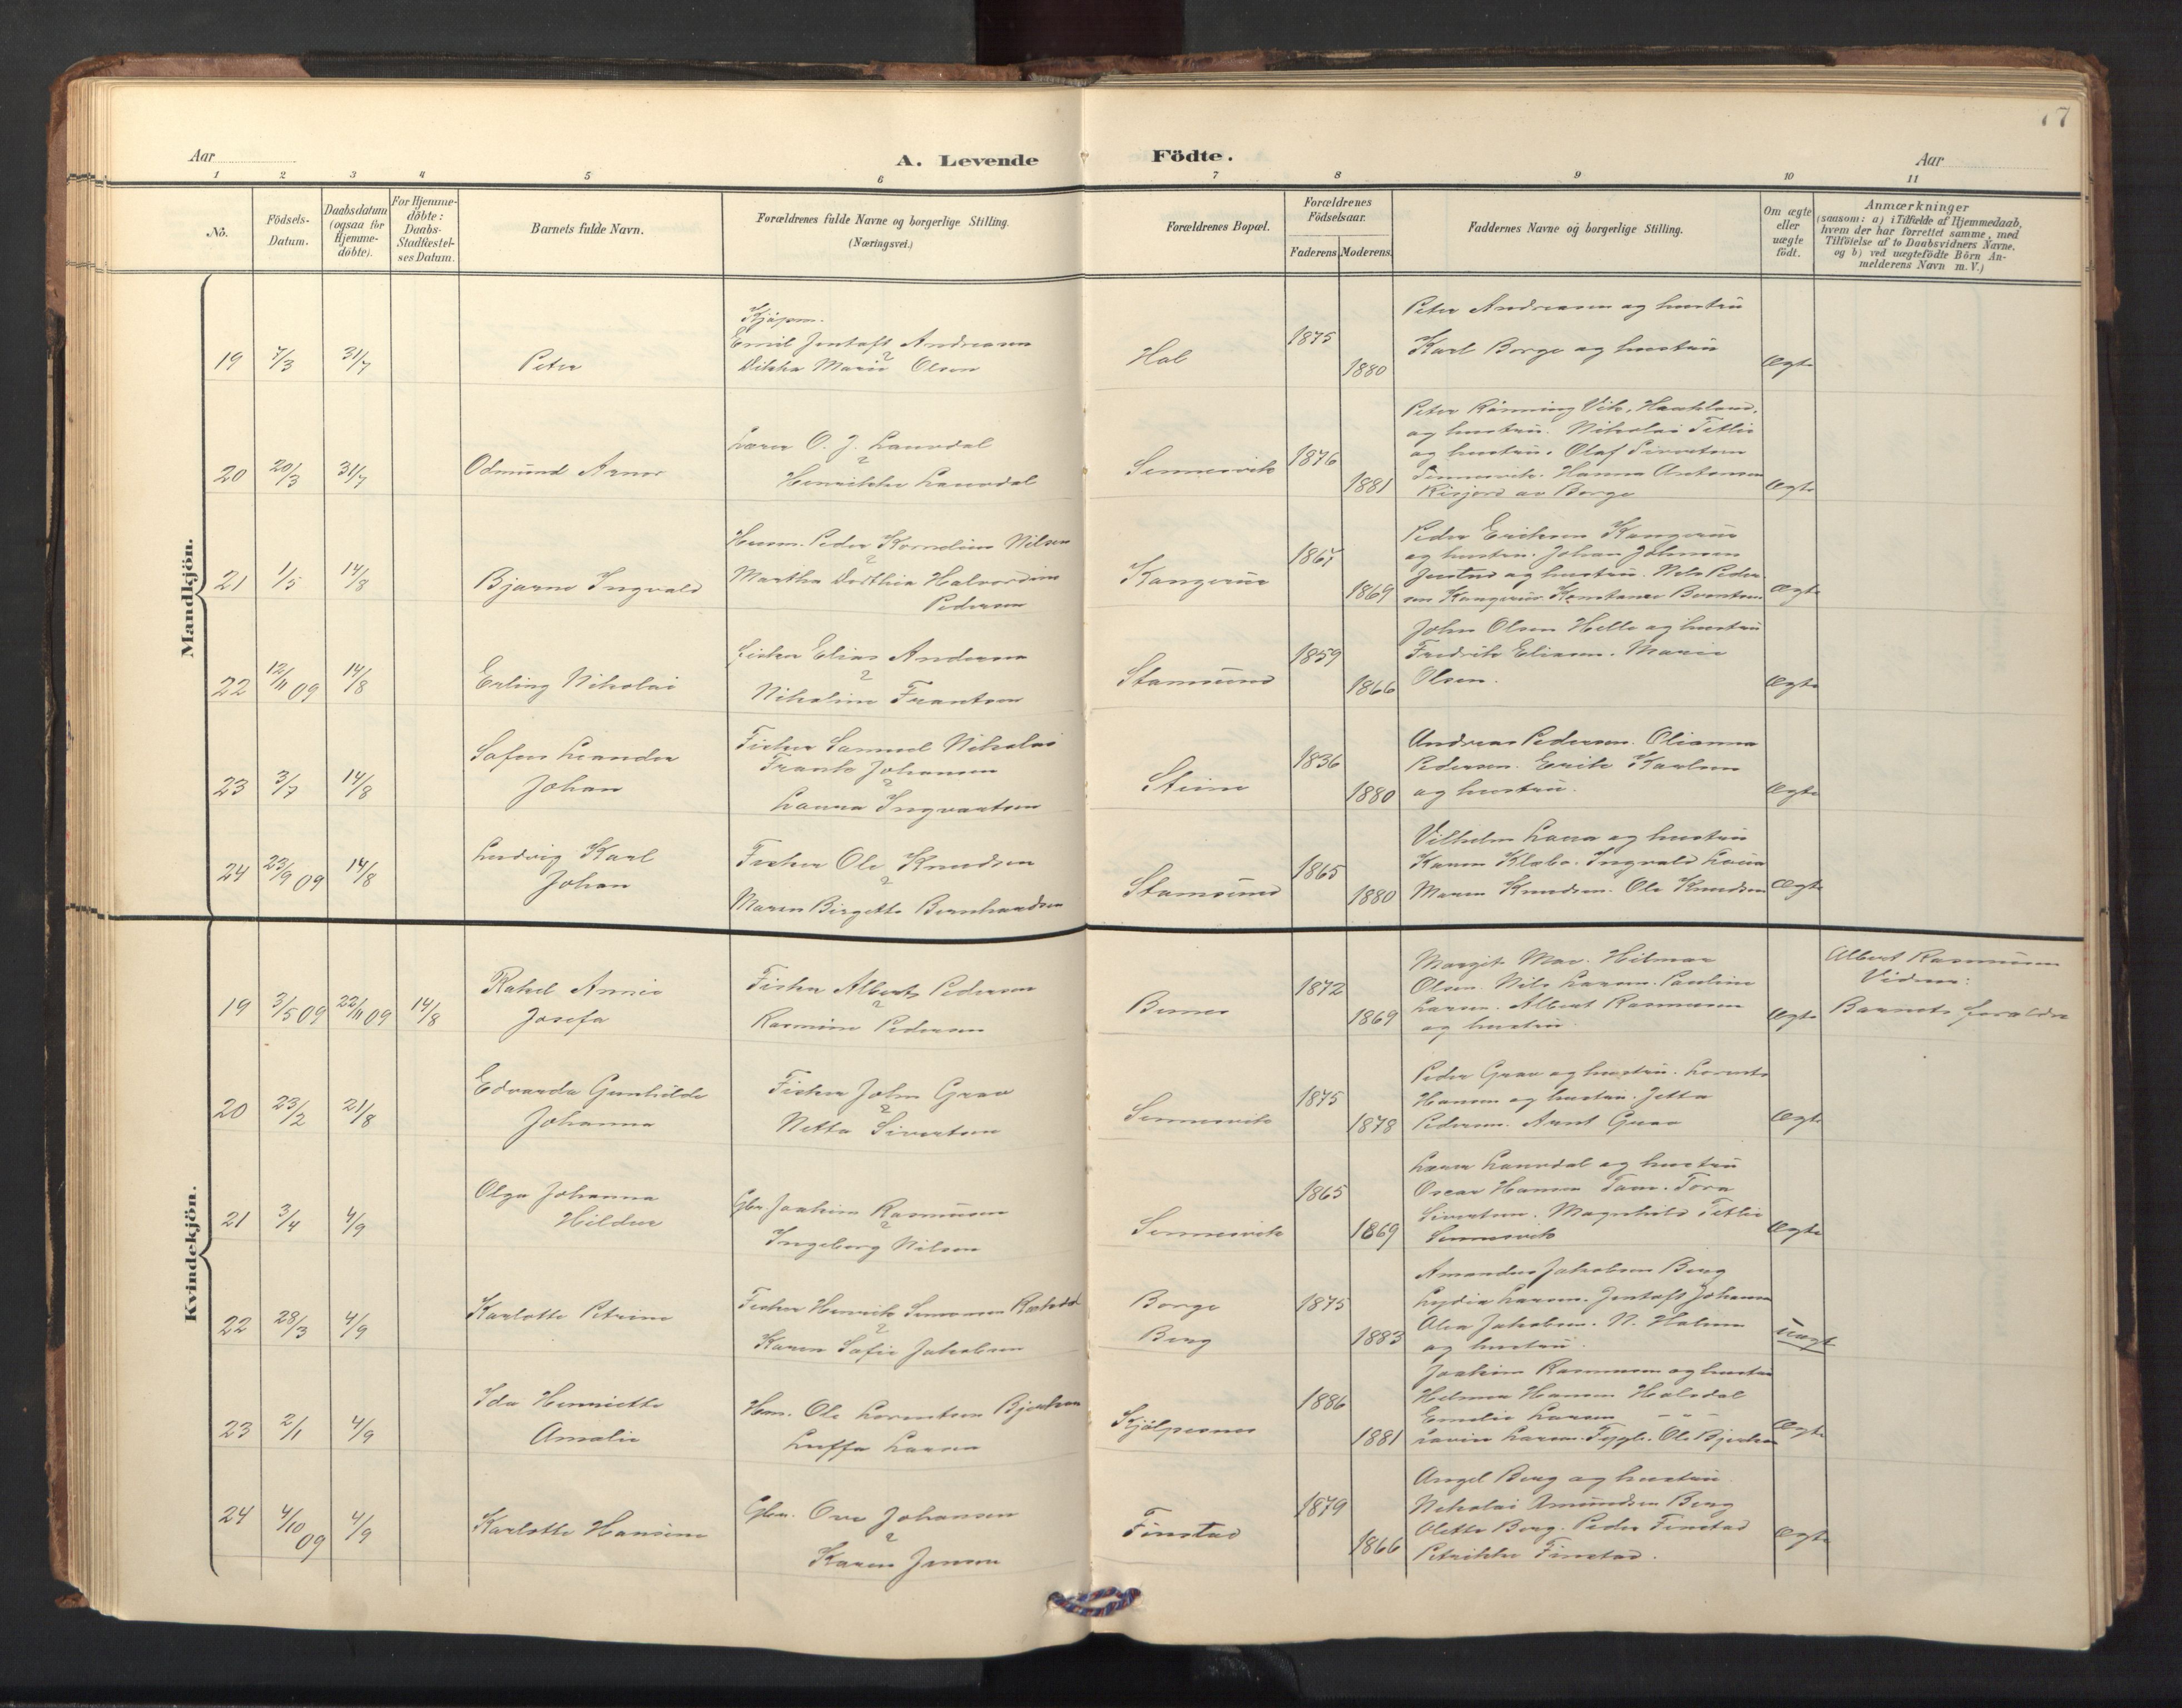 17
Aar
A. Levende Födte.
Aar
1 2 3 4 5 6 7 8 9 10 11
No.
Födsels-
Datum.
Daabsdatum
(ogsaa for
Hjemme-
döbte).
For Hjemme-
döbte:
Daabs-
Stadfæstel-
ses Datum.
Barnets fulde Navn.
Forældrenes fulde Navne og borgerlige Stilling.
(Næringsvei.)
Forældrenes Bopæl.
Forældrenes
Födselsaar.
Faderens Moderens
Faddernes Navne og borgerlige Stilling.
Om ægte
eller
uægte
födt.
Anmærkninger
(saasom: a) i Tilfælde af Hjemmedaab,
hvem der har forrettet samme, med
Tilföielse af to Daabsvidners Navne.
og b) ved uægtefödte Börn An-
melderens Navn m. V.)
Mandkjön.
19 7/3 31/7 Peter
Kjöpm.
Emil Jentoft Andreasen
Marie Olsen
Hol
1875
1880
Peter Andreasen og hustru
Karl Borge og hustru
Ægte
20 20/3 31/7 Odmund Arnor
Lærer O. J. Laurdal
Henrikke Laurdal
Sennesvik
1876
1881
Peter Rönning Vik,
og hustru. Nikolai Tetlie
og hustru. Olaf Sivertsen
Sennesvik. Hanna Antonsen
av Borge
Ægte
21 1/5 14/8 Bjarne Ingvald
Husm. Peder Kornelius Nilsen
Martha Dorthea
Pedersen
Kangerur
1867
1869
Peder Eriksen Kangerur
og hustru. Johan Johnsen
Justad og hustru. Nels Peder-
sen Kangerur. Konstance Berntsen
Ægte
22 12/11 09 14/8 Erling Nikolai
Fisker Elias Andersen
Nikoline Frantsen
Stamsund
1859
1866
John Olsen Helle og hustru
Fredrik Eliasen. Marie
Olsen.
Ægte
23 3/7 14/8 Sofus Leander
Johan
Fisker Samuel Nikolai
Frank Johansen
Laura Ingvartsen
Steine
1836
1880
Andreas Pedersen. Olianna
Pedersen. Erik Karlsen
og hustru.
Ægte
24 23/9 09 14/8 Ludvig Karl
Johan
Fisker Ole Knudsen
Maren Birgitte Bernhardsen
Stamsund
1865
1880
Vilhelm og hustru
Karen Klæbo. Ingvald
Maren Knudsen. Ole Knudsen
Ægte
Kvindekjön.
19 3/5 09 22/11 09 14/8 Rakel Annie
Josefa
Fisker Albert Pedersen
Rasmine Pedersen
1872
1869
Margit Mar. Hilmar
Olsen. Nils Larsen. Pauline
Larsen. Albert Rasmusen
og hustru.
Ægte
Albert Rasmusen
Vidner:
Barnets foreldre
20 23/2 21/8 Edvarda Gunhilde
Johanna
Fisker John Grav
Netta Sivertsen
Sennesvik
1875
1878
Peder Grav og hustru. Lorents
Hansen og hustru. Jetta
Pedersen. Arnt Grav
Ægte
21 3/4 4/9 Olga Johanna
Hildur
Gbr. Joakim Rasmusen
Ingeborg Nilsen
Sennesvik
1865
1869
Lærer Laurdal og hustru
Oscar Hansen Tora
Sivertsen. Magnhild Tetlie
Sennesvik
Ægte
22 28/3 4/9 Karlotte Petrine
Fisker Henrik Simonsen
Karen Sofie Jakobsen
Borge
Berg
1875
1883
Amandus Jakobsen Berg
Lydia Larsen. Jentoft Johansen
Olea Jakobsen. N.
og hustru.
Uægte
23 2/1 4/9 Ida Henriette
Amalie
Hm. Ole Lorentsen
Larsen
1886
1881
Joakim Rasmusen og hustru
Helmer Hansen Holsdal
Emilie Larsen
Lovise Larsen.
Ægte
24 4/10 09 4/9 Karlotte Hansine
Gbr. Ove Johansen
Karen Jensen
Finstad
1879
1866
Angel Berg og hustru
Nikolai Amundsen Berg
Olette Berg. Peder Finstad
Petrikke Finstad.
Ægte